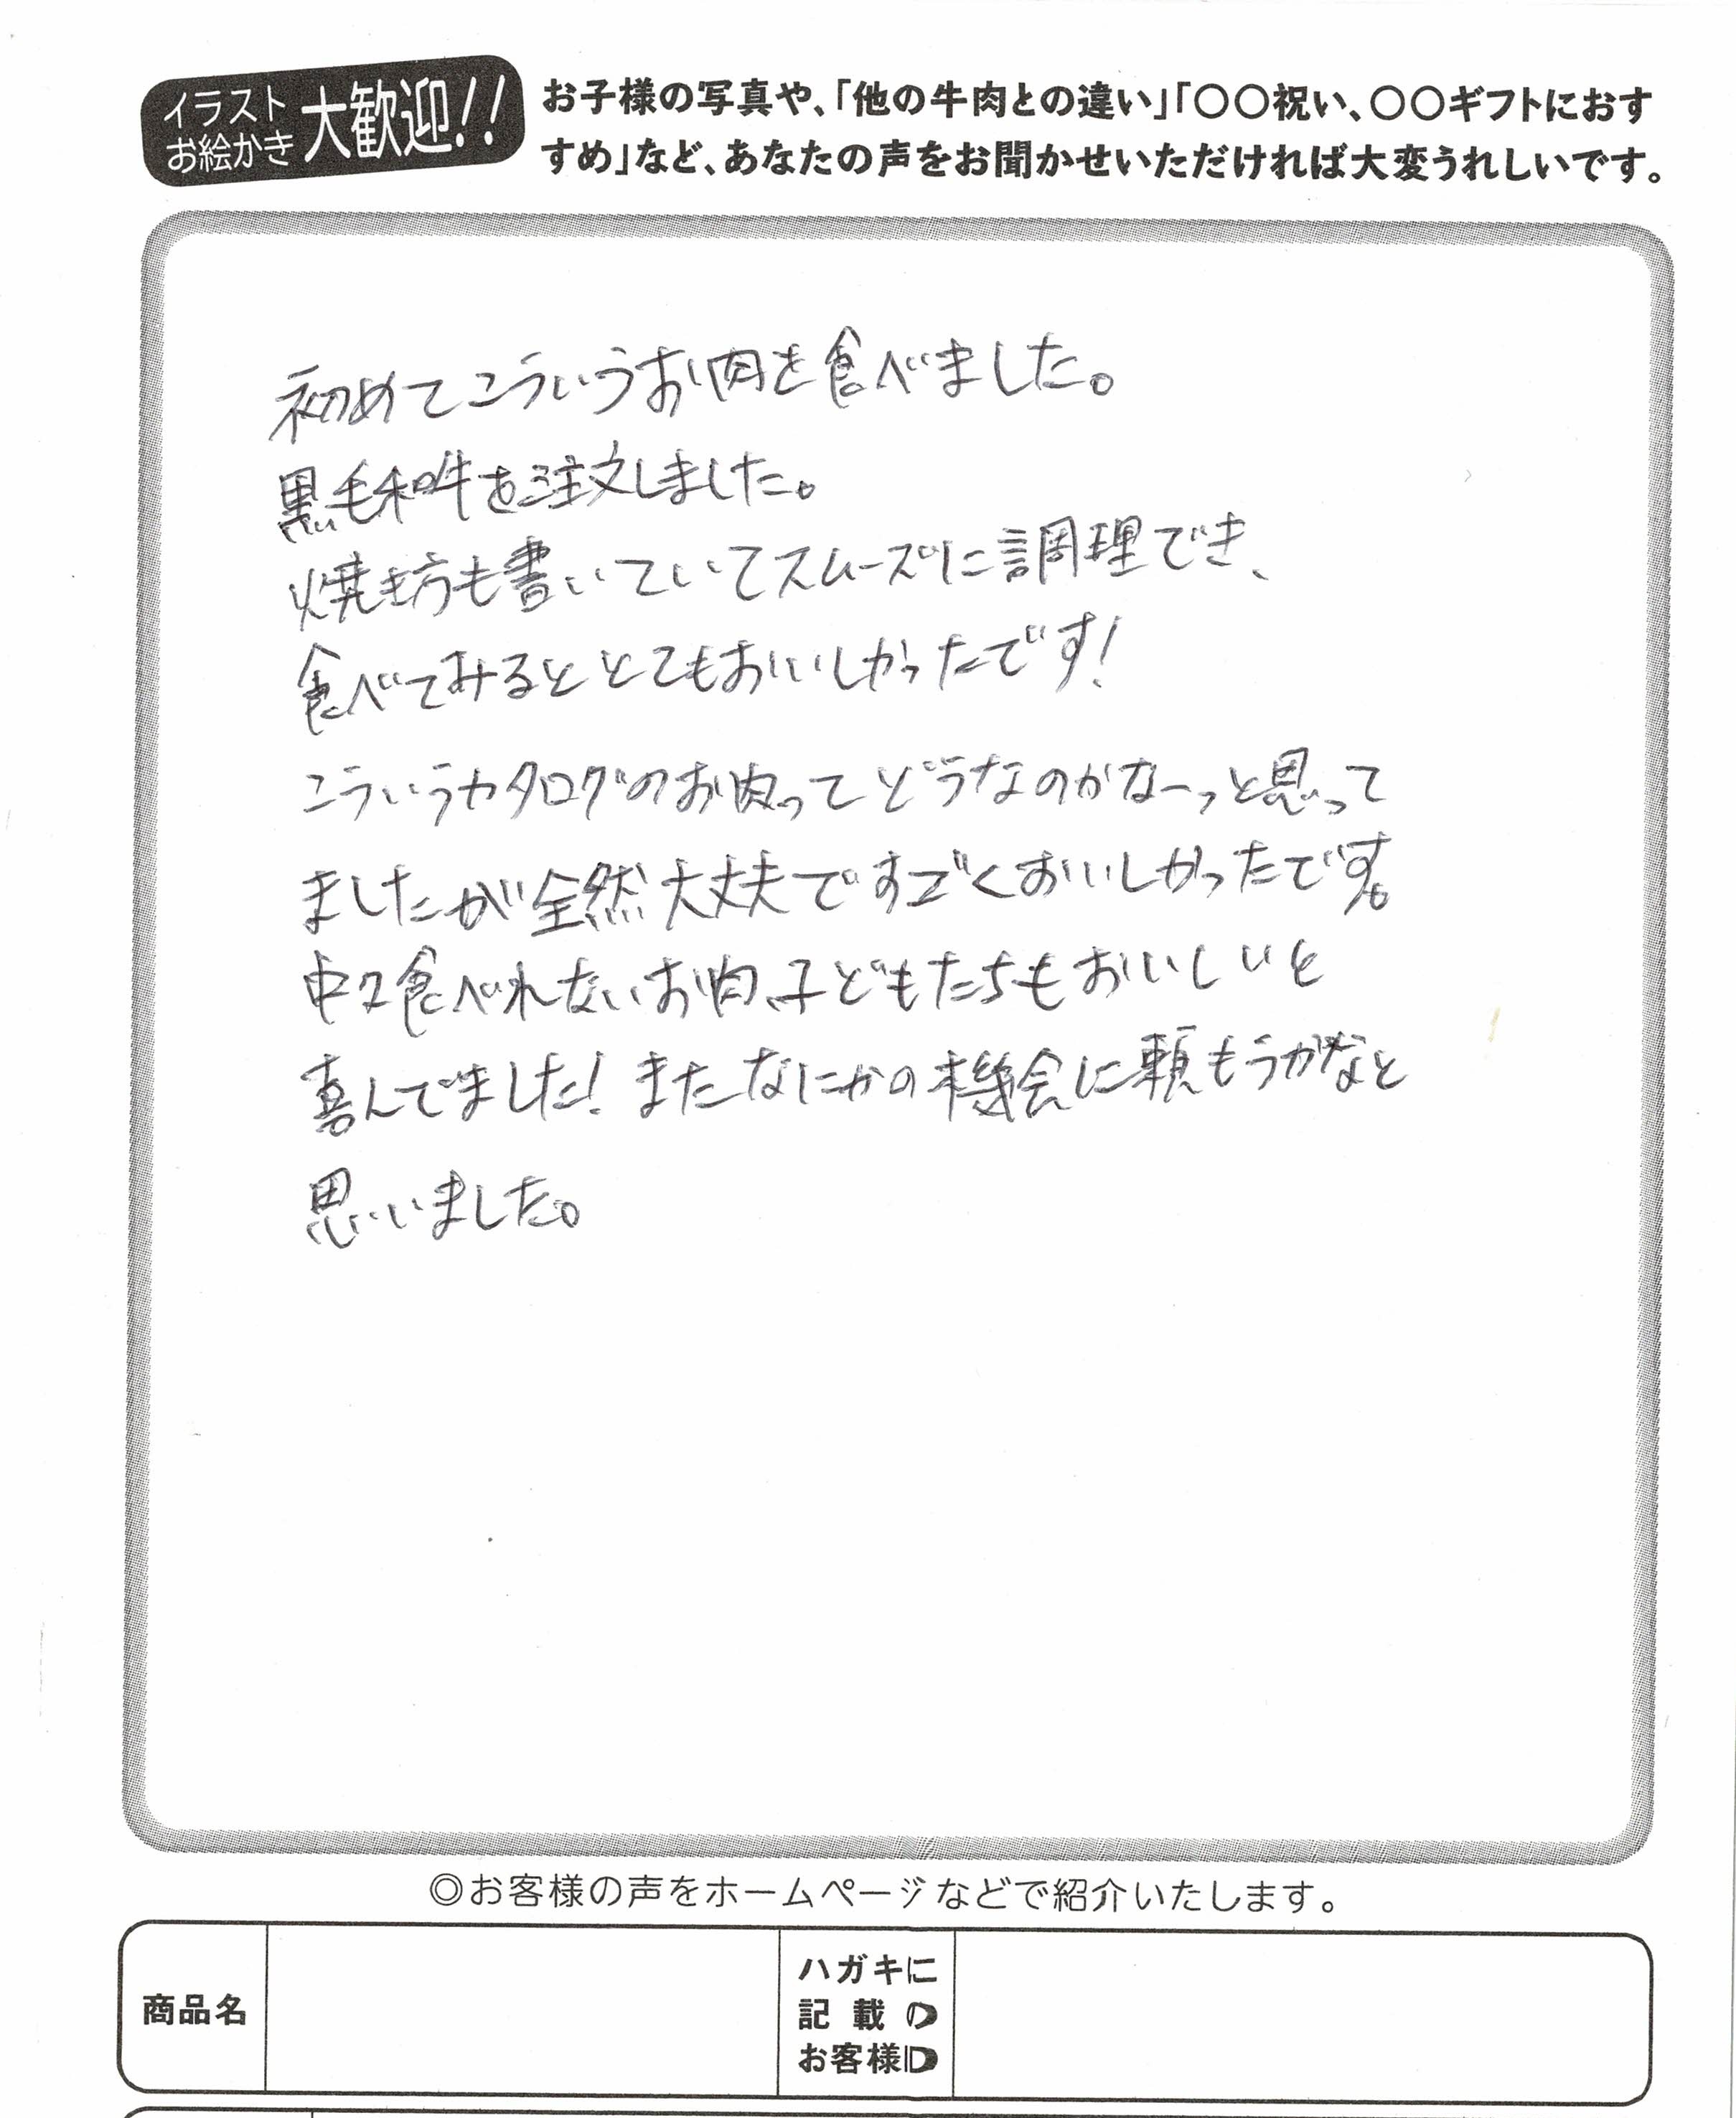 イラスト
お絵かき
大歓迎!!
お子様の写真や、「他の牛肉との違い」「〇〇祝い、〇〇ギフトにおす
すめ」など、あなたの声をお聞かせいただければ大変うれしいです。
初めてこういうお肉を食べました。
黒毛和牛を注文しました。
焼き方も書いていてスムーズに調理でき、
食べてみるととてもおいしかったです!
こういうカタログのお肉ってどうなのかなーっと思って
ましたが全然大丈夫ですごくおいしかったです。
中々食べれないお肉、子どもたちもおいしいと
喜んでました! またなにかの機会に頼もうかなと
思いました。
◎お客様の声をホームページなどで紹介いたします。
商品名
ハガキに
記載の
お客様ID